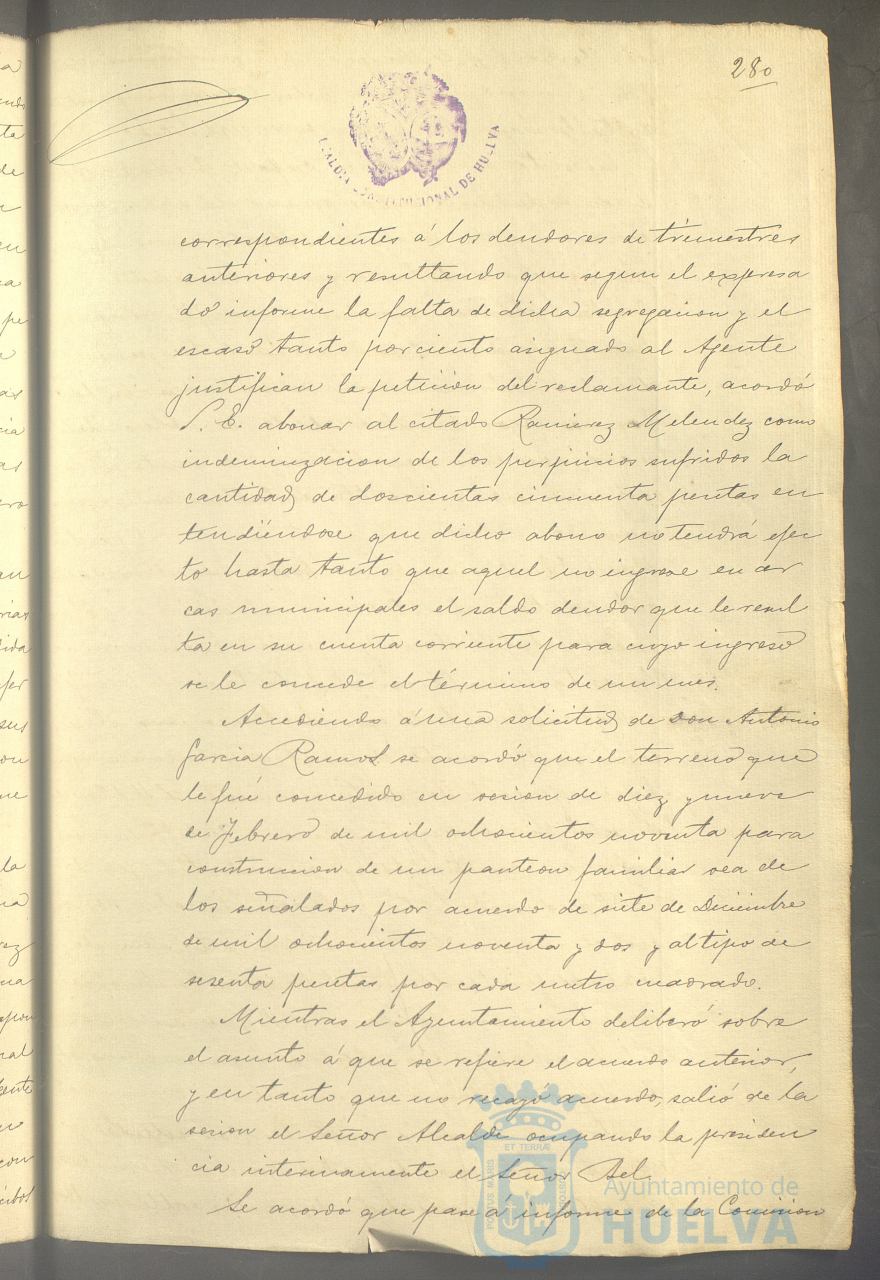 280
ALCALDIA CONSTITUCIONAL DE HUELVA
correspondientes á los deudores de trimestres
anteriores y resultando que segun el expresa
do informe la falta de dicha segregacion y el
escaso tanto por ciento asignado al Agente
justifican la peticion del reclamante, acordó
S. E. abonar al citado Ramirez Melendez como
indemnizacion de los perjuicios sufridos la
cantidad de doscientas cincuenta pesetas en
tendiéndose que dicho abono no tendrá efec
to hasta tanto que aquel no ingrese en ar
cas municipales el saldo deudor que le resul
ta en su cuenta corriente para cuyo ingreso
se le concede el término de un mes.
Accediendo á una solicitud de don Antonio
Garcia Ramos se acordó que el terreno que
le fué concedido en sesion de diez y nueve
de Febrero de mil ochocientos noventa para
construccion de un panteon familiar sea de
los señalados por acuerdo de siete de Diciembre
de mil ochocientos noventa y dos y al tipo de
sesenta pesetas por cada metro cuadrado.
Mientras el Ayuntamiento deliberó sobre
el asunto á que se refiere el acuerdo anterior,
y en tanto que no recayó acuerdo, salió de la
sesion el Señor Alcalde ocupando la presiden
cia interinamente el Señor Bel.
Se acordó que pase á informe de la Comision
ET TERRÆ
Ayuntamiento de
HUELVA